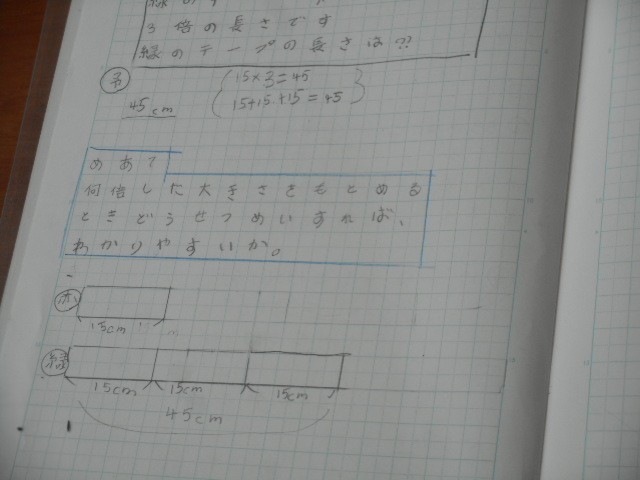 3倍の長さです
緑のテープの長さは??
予
15×3=45
45cm
15+15+15=45
めあて
何倍した大きさをもとめる
ときどうせつめいすれば、
わかりやすいか。
赤
15cm
緑
15cm 15cm 15cm
45cm